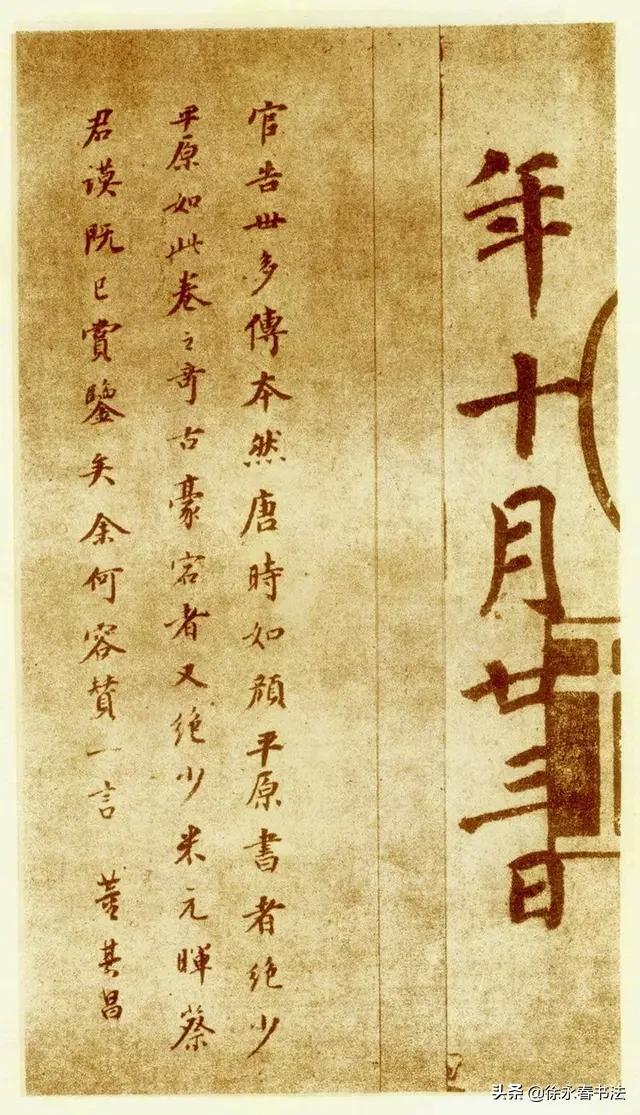 年十月廿三日
官告世多傳本然唐時如顔平原書者絶少
平原如此卷之奇古豪宕者又絶少米元暉蔡
君謨既已賞鑒矣余何容贊一言 董其昌
头条 @徐永春书法